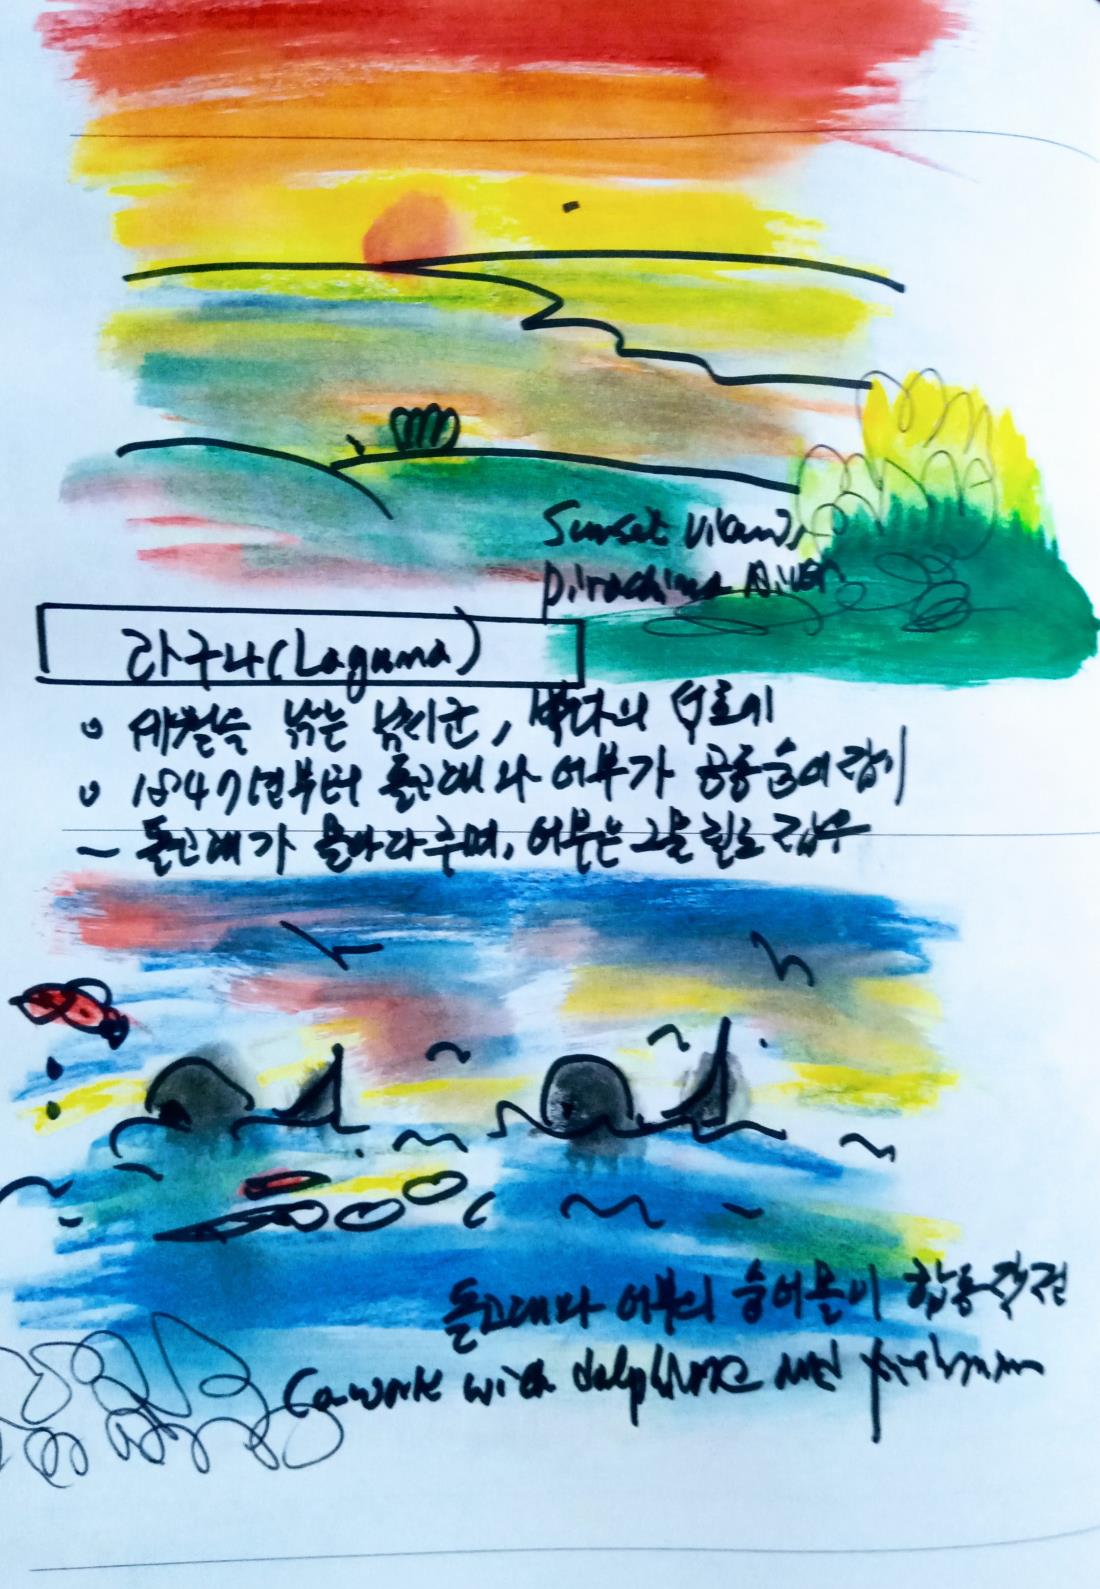 Sunset
라구나(Laguna)
세월을 낚는 낚시군, 바다의
1847년부터 돌고래와 어부가 공동 숭어잡이
~ 돌고래가 몰아다 주며, 어부는 그물
돌고래와 어부의 숭어몰이 합동작전
Cowork with dolphins and